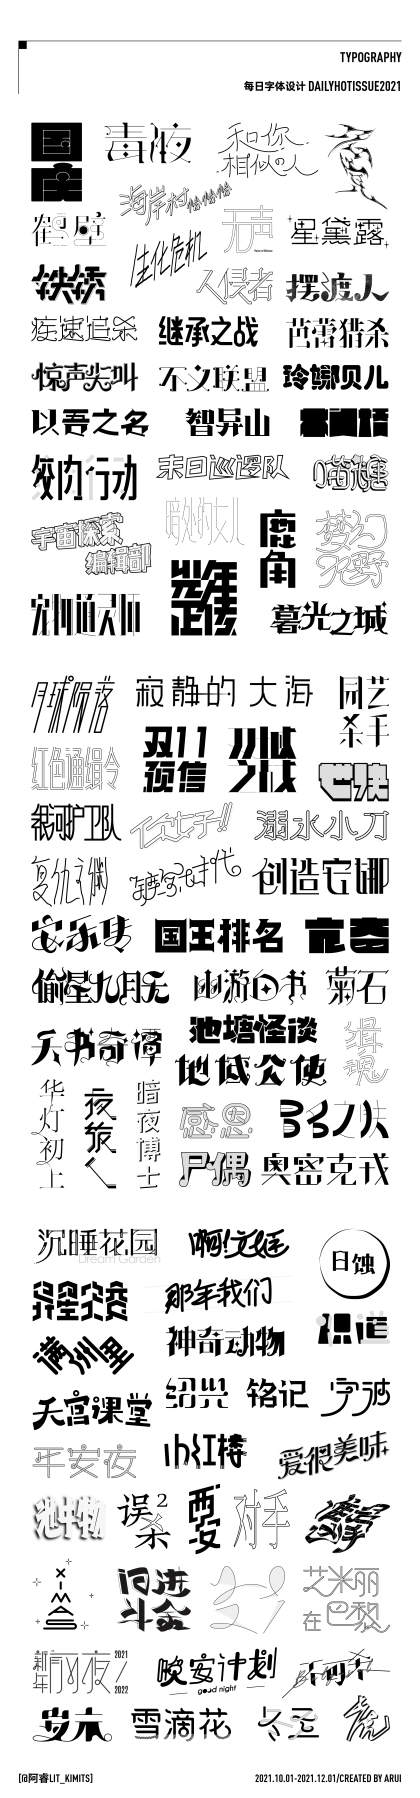 TYPOGRAPHY
每日字体设计 DAILYHOTISSUE2021
国庆
毒液
和你
相似的人
海岸村恰恰恰
无声
鹤壁
生化危机
星黛露
铁锈
入侵者
摆渡人
疾速追杀
继承之战
芭蕾猎杀
惊声尖叫
不义联盟
玲娜贝儿
以吾之名
智异山
较内行动
末日巡逻队
宇宙探索
编辑部
暗处的女儿
鹿角
梦幻
光年
正传
宠物通灵师
暮光之城
月球陨落
寂静的 大海
园艺
杀手
红色通缉令
双11
预信
之战
银河护卫队
亿万女子!!
溺水小刀
复仇之渊
创造安娜
安乐传
国王排名
偷星九月天
幽游白书
菊石
天书奇谭
池塘怪谈
地域公使
缉魂
华灯初上
夜旅人
暗夜博士
感恩
尸偶
奥密克戎
沉睡花园
Dream Garden
啊!文廷
日蚀
异星灾变
那年我们
神奇动物
满洲里
天宫课堂
绍兴
铭记
字波
平安夜
小红楼
爱很美味
池中物
误2杀
西安
对手
XIMAS
闪进
斗金
芝米丽
在巴黎
新年前夜
2021
2022
晚安计划
good night
不可不
岁末
雪滴花
冬至
虎
[@阿睿LIT_KIMITS]
2021.10.01-2021.12.01/CREATED BY ARUI